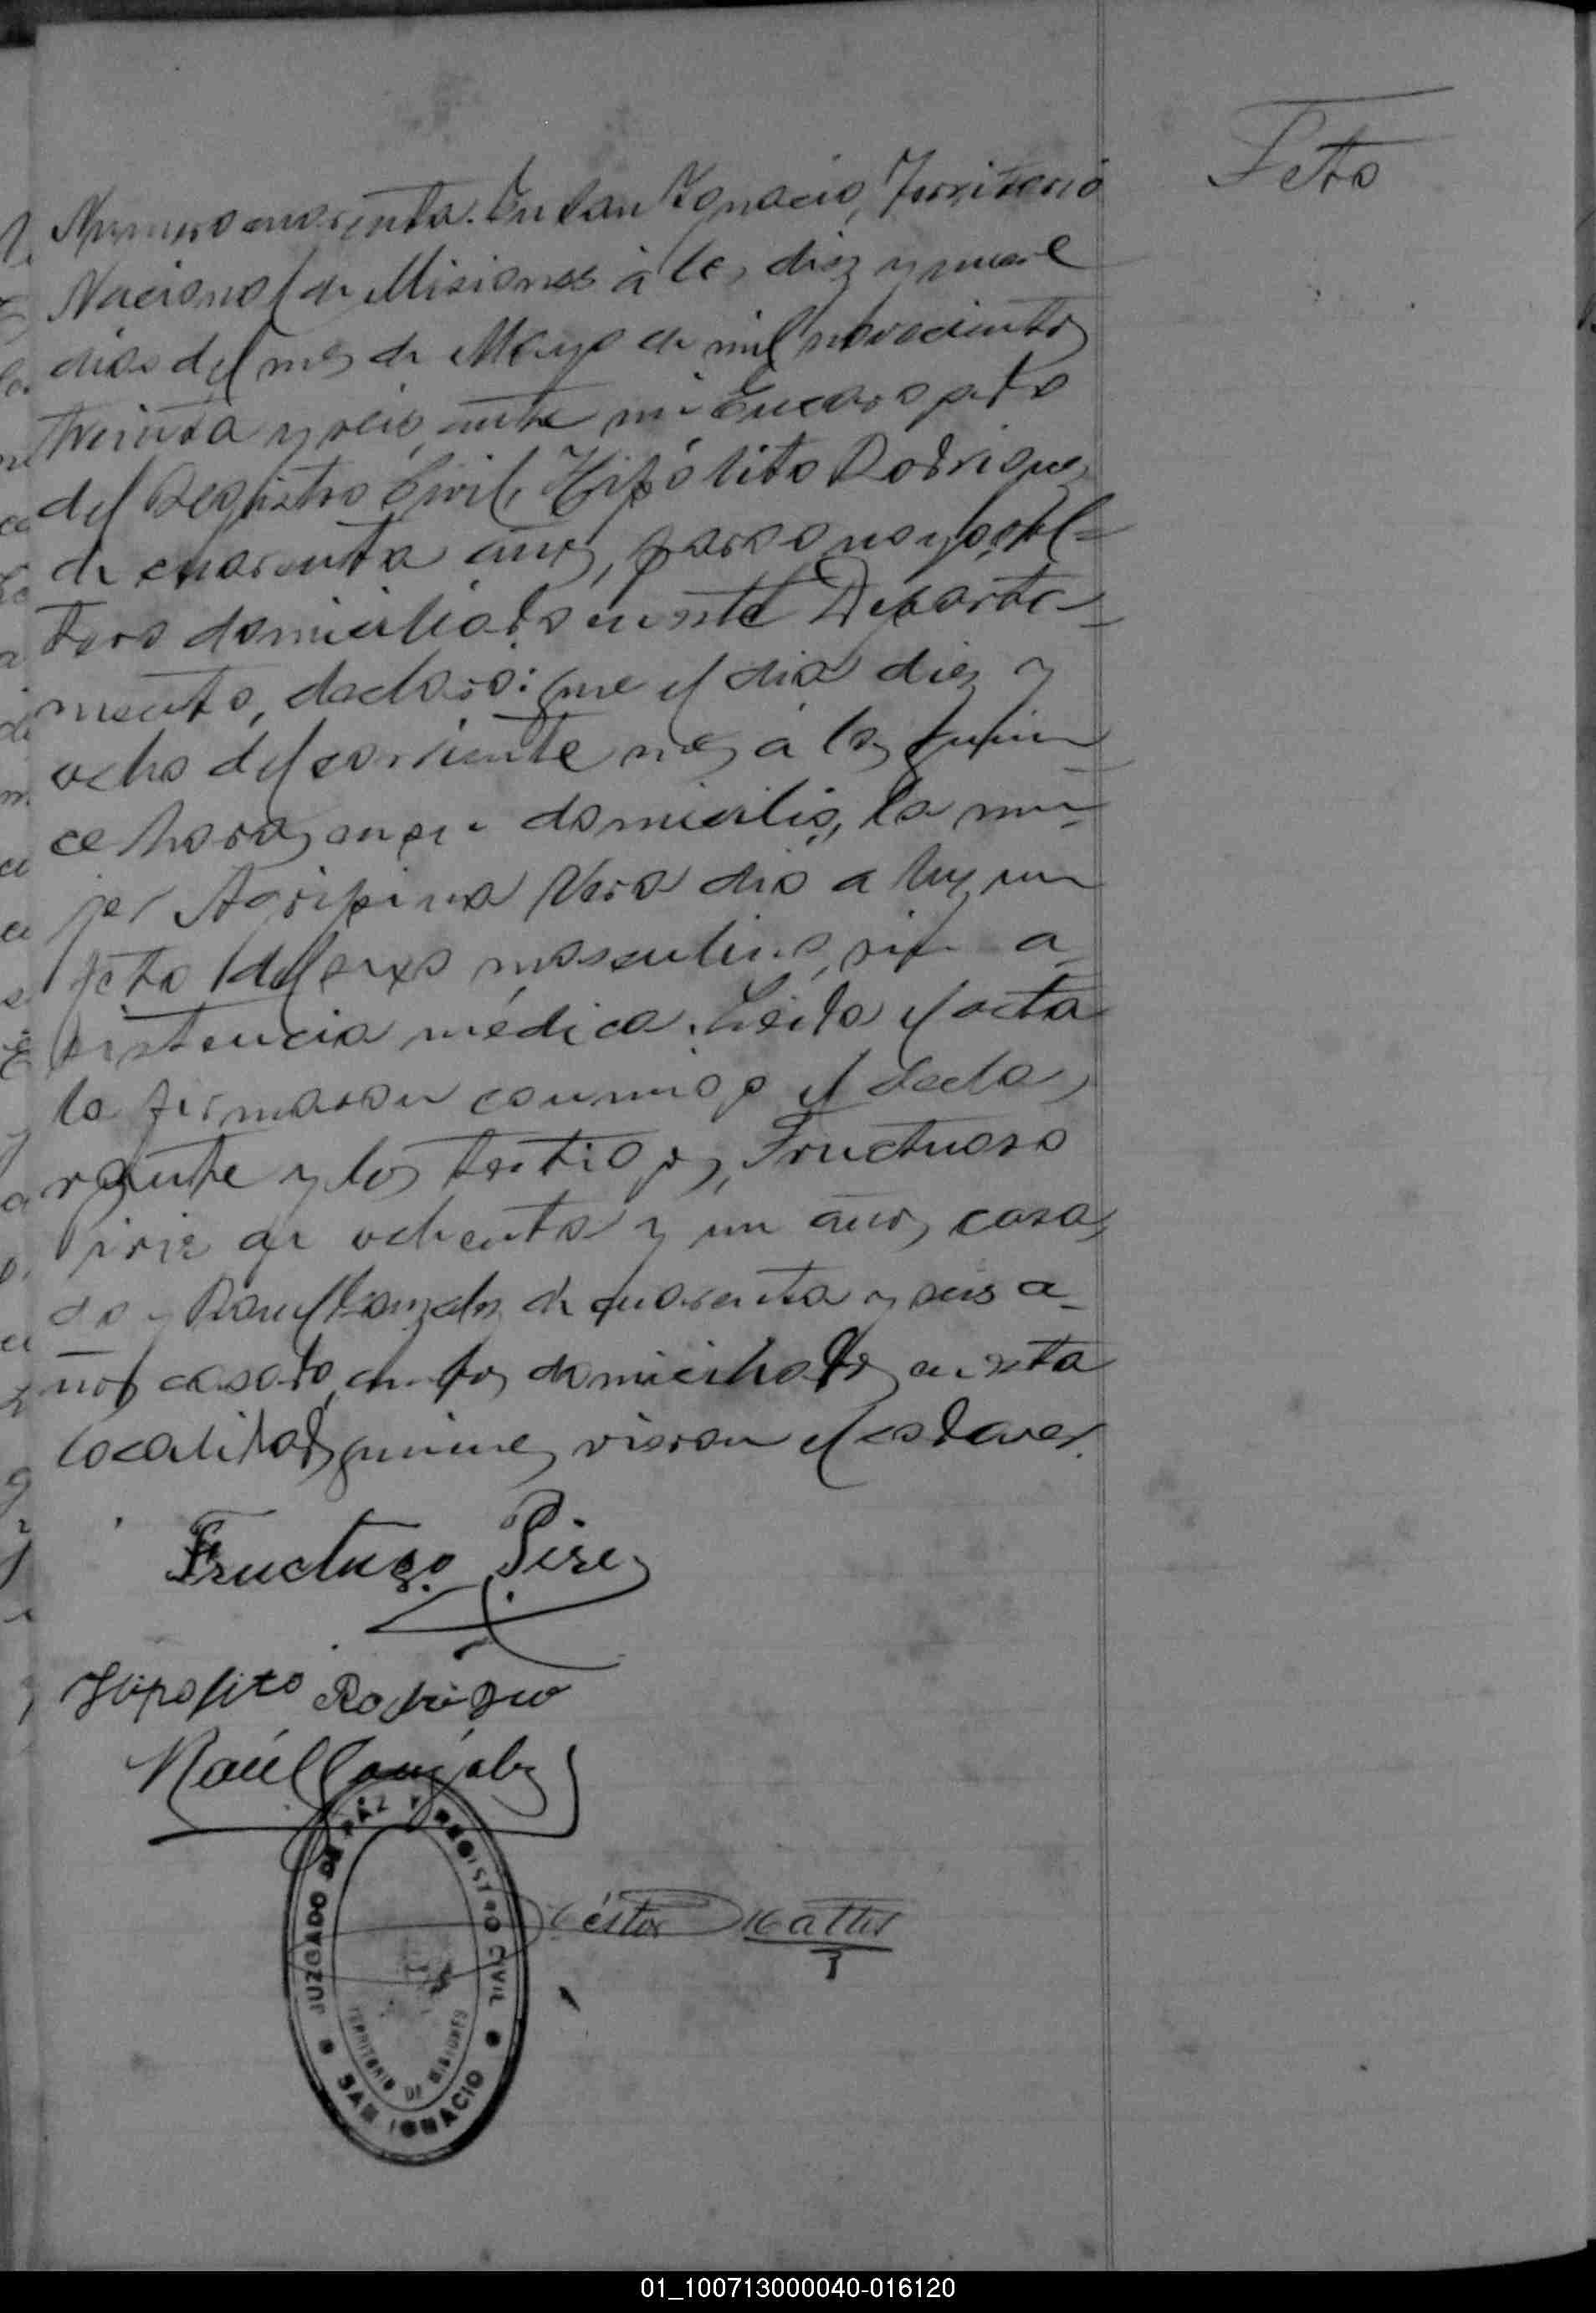 Feto
Numero cuarenta. En San Ignacio, Territorio
Nacional de Misiones á los diez y nueve
dias del mes de Mayo de mil novecientos
treinta y seis, ante mi Encargado
del Registro Civil, Hipólito Rodriguez
de cuarenta años, paraguayo, sol=
tero domiciliado en este Departa=
mento, declaró: que el dia diez y
ocho del corriente mes á las quin=
ce horas, en su domicilio, la mu=
jer Agripina Vera dió a luz un
feto del sexo masculino, sin a=
sistencia médica. Leida el acta
la firmaron conmigo el decla=
rante y los testigos, Fructuoso
Piris de ochenta y un años, casa=
do y Raul Gonzalez de cuarenta y seis a=
ños casado, ambos domiciliados en esta
localidad, quienes vieron el cadaver.
Fructuso Pire
Hipolito Rodrigue
Raúl Gonzalez
Néstor
JUZGADO DE PAZ Y REGISTRO CIVIL
TERRITORIO DE MISIONES
SAN IGNACIO
01_100713000040-016120